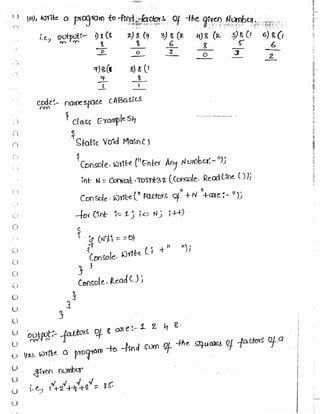 111). Write a program to find factors of the given Number.
i.e, output:- 1) 8 (8 2) 8 (4 3) 8 (2 4) 8 (2 5) 8 (1 6) 8 (1
8 8 6 8 5 6
0 0 2 0 3 2
7) 8 (1 8) 8 (1
7 8
1
code:- namespace CABasics
{
class Example54
{
Static Void Main()
{
Console.Write("Enter Any Number:-");
int N = Convert.ToInt32(Console.ReadLine());
Console.Write("Factors of" + N + "are:-");
for (int i=1; i<=N; i++)
{
if (N%i==0)
{
Console.Write(i + " ");
}
}
Console.Read();
}
}
}
output:- factors of 8 are:- 1 2 4 8.
112). Write a program to find sum of the squares of factors of a
given number
i.e, 1²+2²+4²+8² = 85.